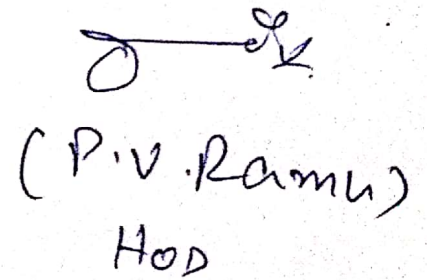 (P.V.Ramu)
HOD